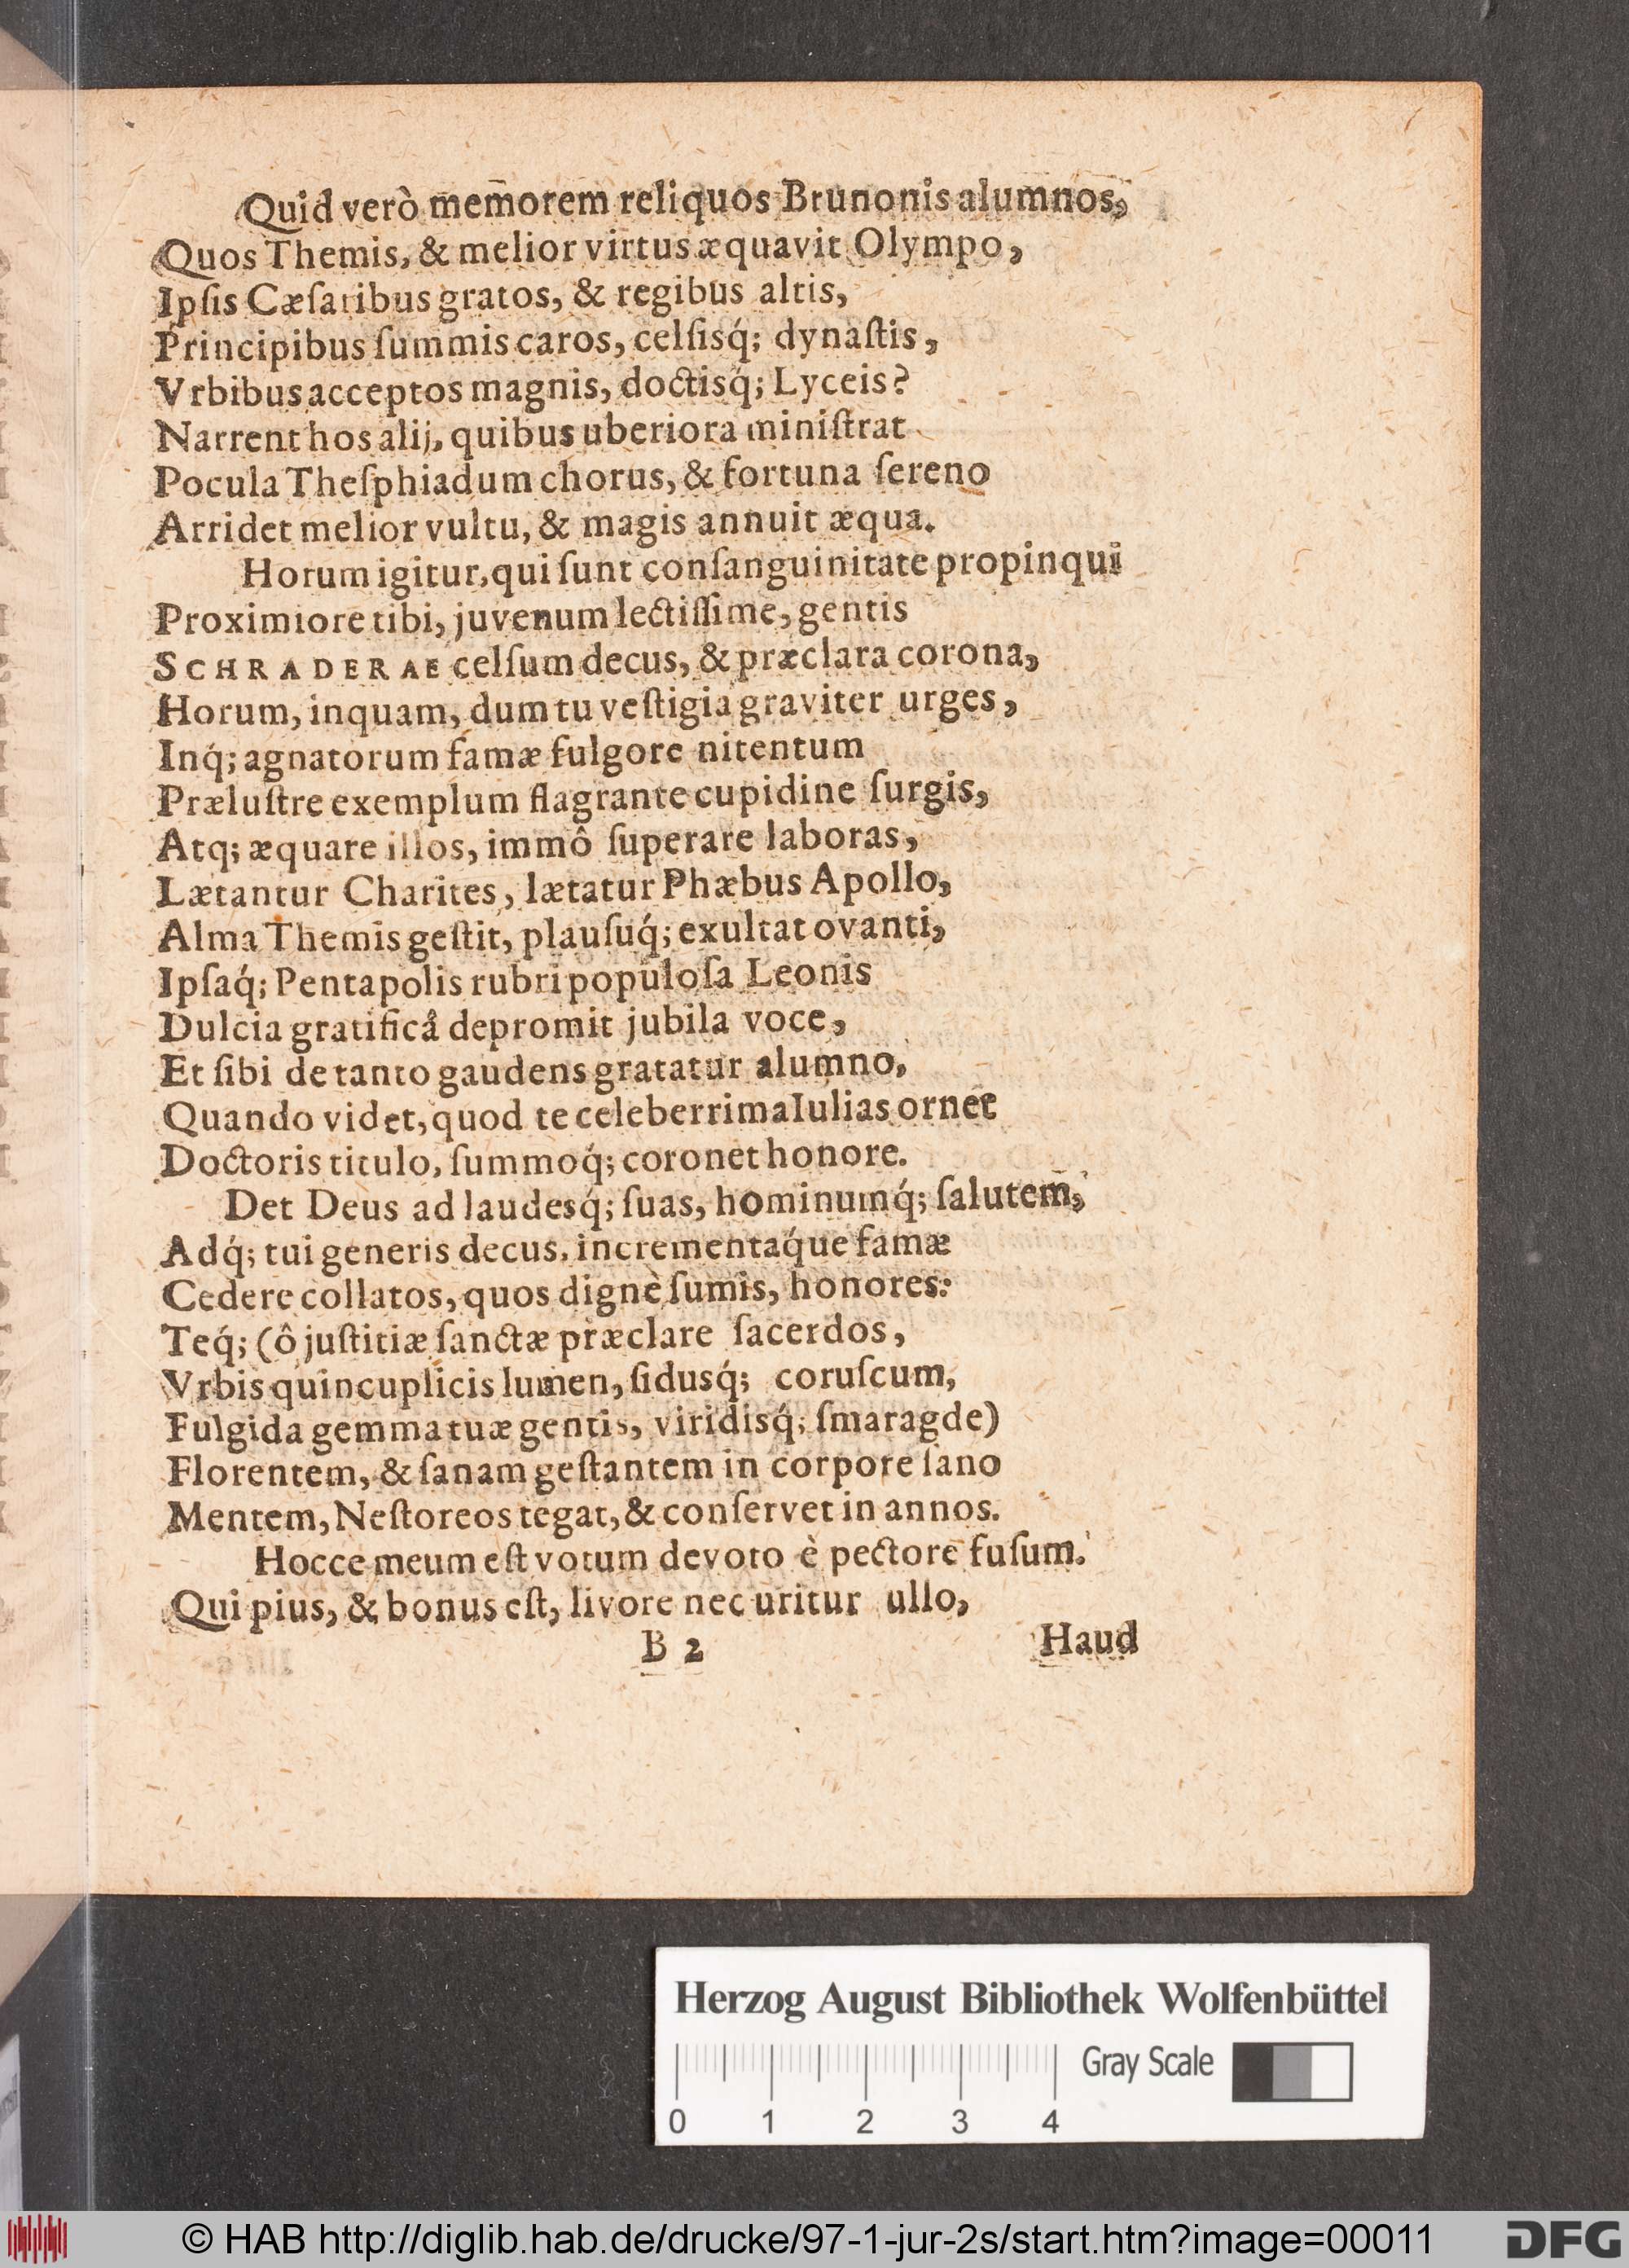 Quid verò mem̃orem reliquos Brunonis alumnos,
Quos Themis, & melior virtus æquavit Olympo,
Ipſis Cæſaribus gratos, & regibus altis,
Principibus ſummis caros, celſisq́; dynaſtis,
Vrbibus acceptos magnis, doctisq́; Lyceis?
Narrent hos alij, quibus uberiora miniſtrat
Pocula Theſphiadum chorus, & fortuna ſereno
Arridet melior vultu, & magis annuit æqua.
Horum igitur, qui ſunt conſanguinitate propinqui
Proximiore tibi, juvenum lectiſſime, gentis
SCHRADERAE celſum decus, & præclara corona,
Horum, inquam, dum tu veſtigia graviter urges,
Inq́; agnatorum famæ fulgore nitentum
Præluſtre exemplum flagrante cupidine ſurgis,
Atq; æquare illos, immô ſuperare laboras,
Lætantur Charites, lætatur Phæbus Apollo,
Alma Themis geſtit, plauſuq́; exultat ovanti,
Ipſaq́; Pentapolis rubri populoſa Leonis
Dulcia gratificâ depromit jubila voce,
Et ſibi de tanto gaudens gratatur alumno,
Quando videt, quod te celeberrima Iulias ornet
Doctoris titulo, ſummoq́; coronet honore.
Det Deus ad laudesq́; ſuas, hominumq́; ſalutem̃,
Adq́; tui generis decus, incrementaq́ue famæ
Cedere collatos, quos dignè ſumis, honores:
Teq́; (ô juſtitiæ ſanctæ præclare ſacerdos,
Vrbis quincuplicis lumen, ſidusq́; coruſcum,
Fulgida gemma tuæ gentis, viridisq́; ſmaragde)
Florentem, & ſanam geſtantem in corpore ſano
Mentem, Neſtoreos tegat, & conſervet in annos.
Hocce meum eſt votum devoto è pectore fuſum.
Qui pius, & bonus eſt, livore nec uritur ullo,
B 2
Haud
Herzog August Bibliothek Wolfenbüttel
Gray Scale
0 1 2 3 4
© HAB http://diglib.hab.de/drucke/97-1-jur-2s/start.htm?image=00011
DFG